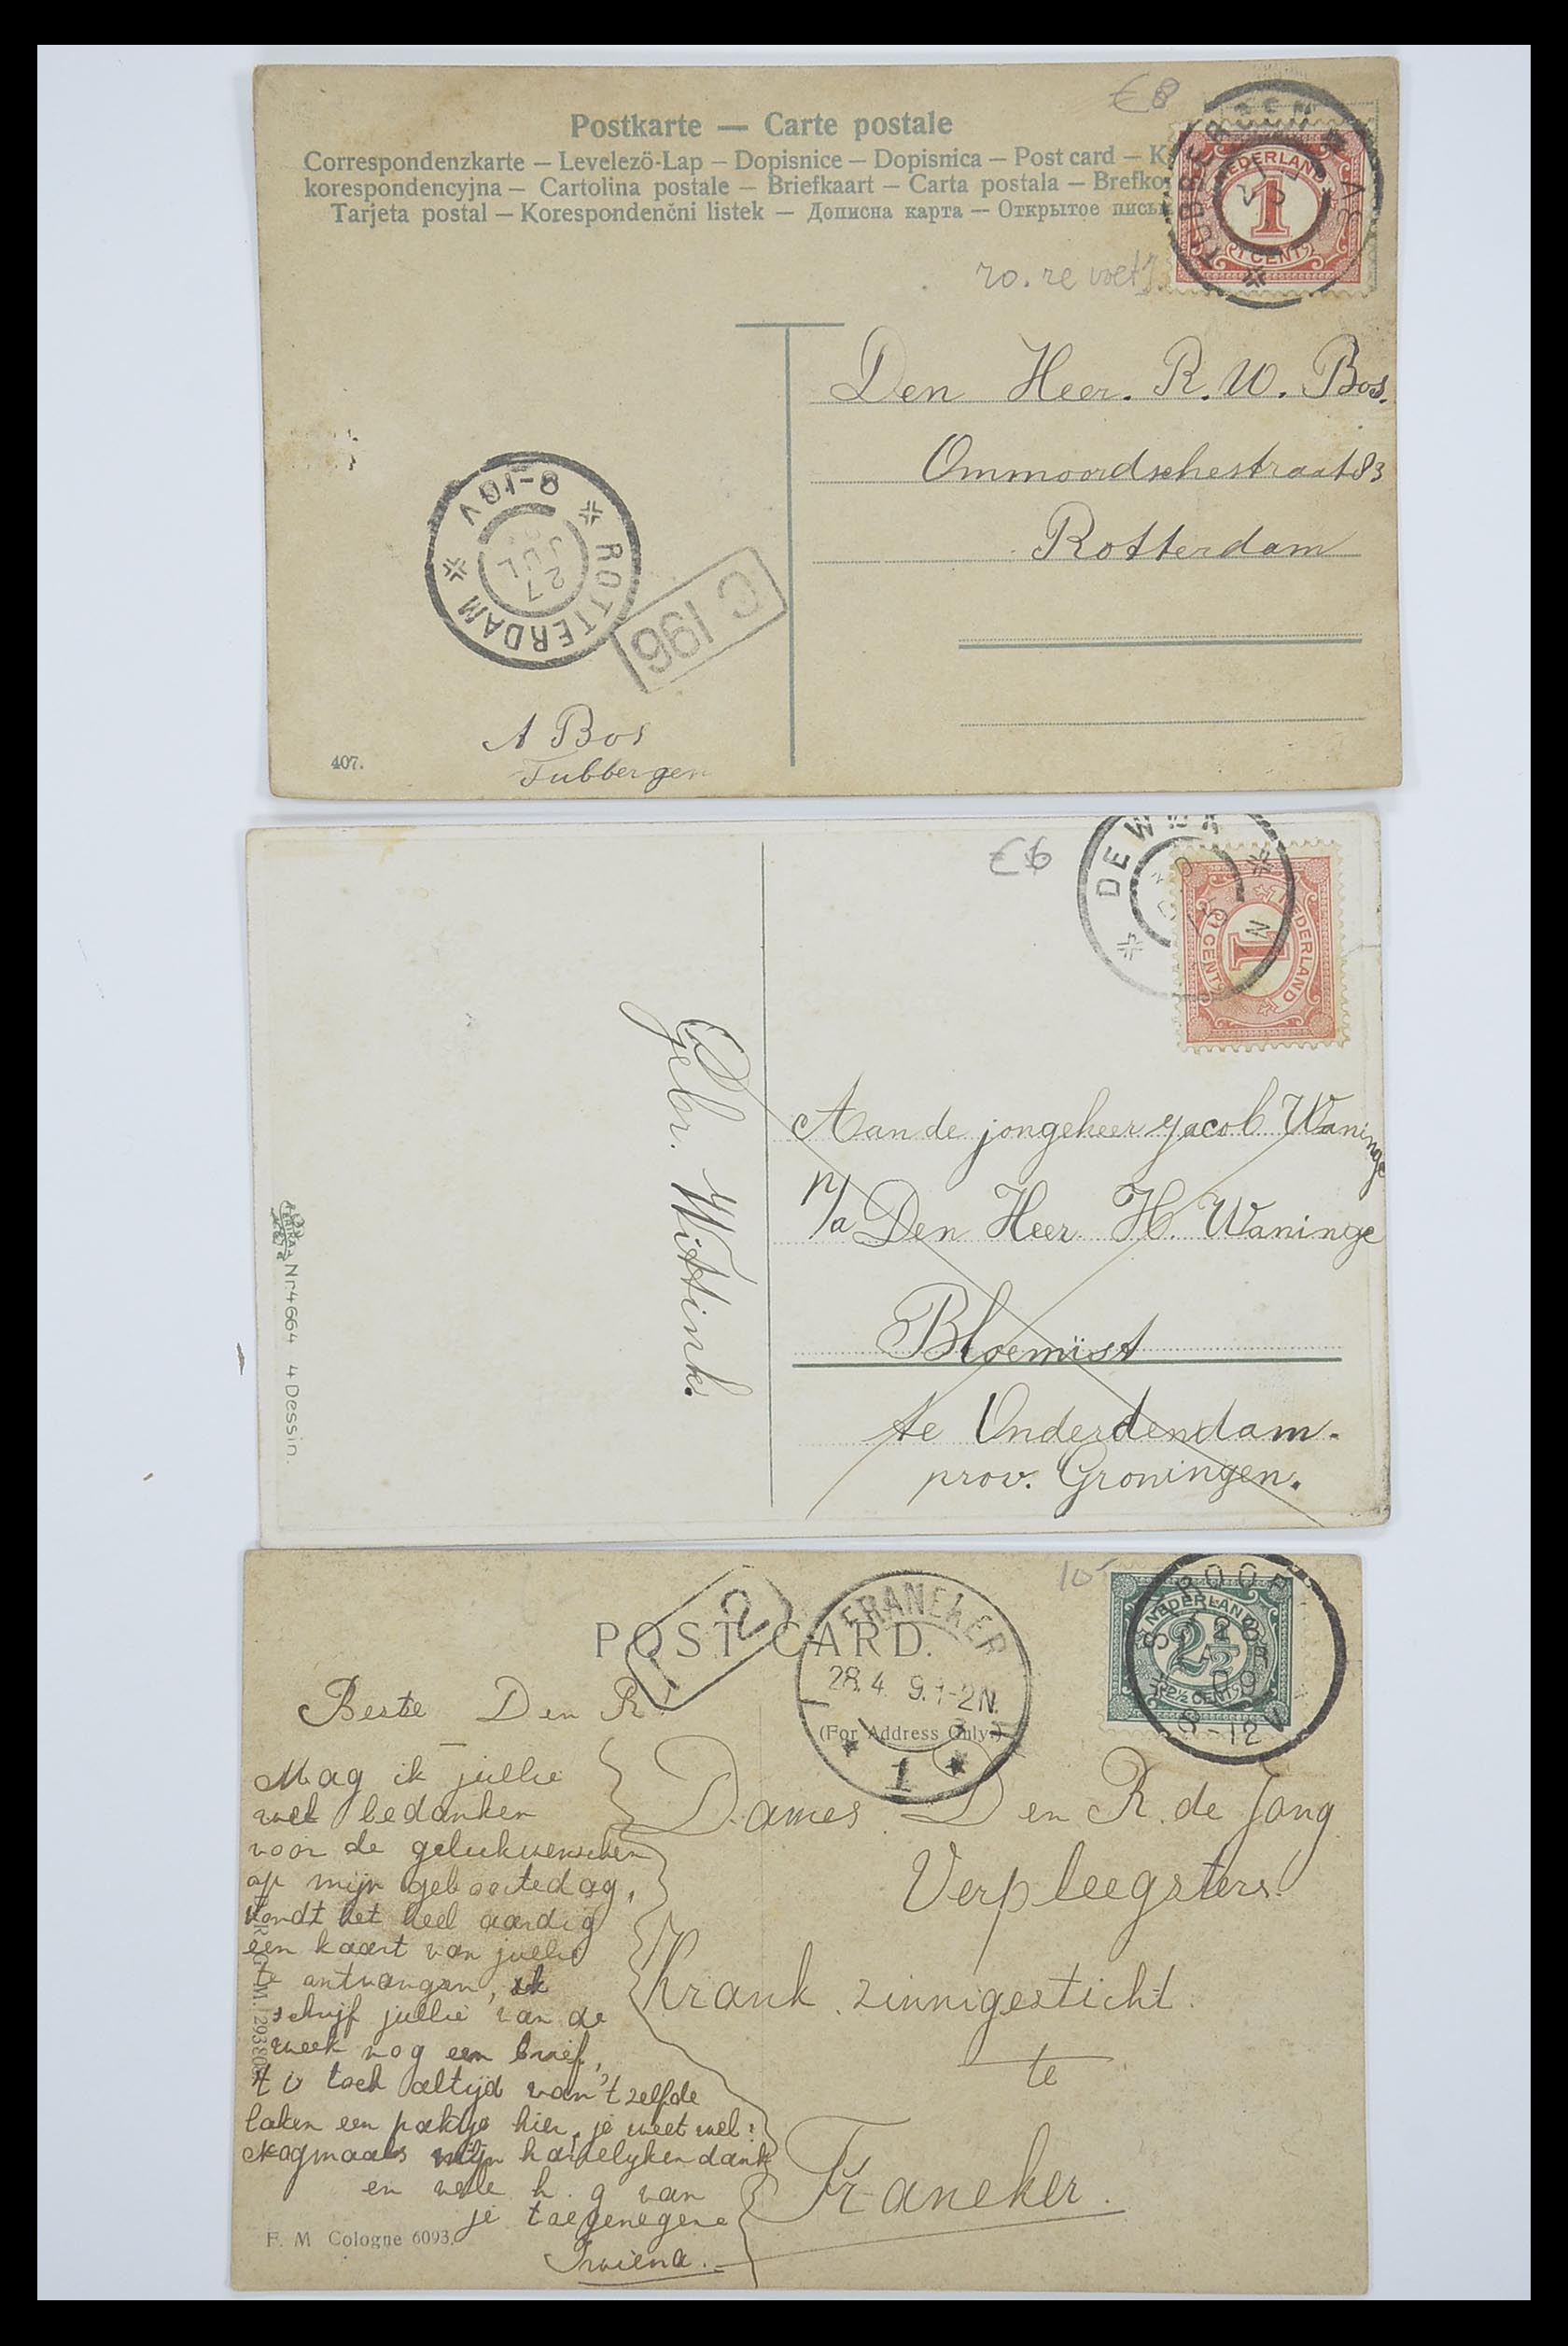 €8
Postkarte — Carte postale
Correspondenzkarte — Levelezö-Lap — Dopisnice — Dopisnica — Post card — K
korespondencyjna — Cartolina postale — Briefkaart — Carta postala — Brefko
Tarjeta postal — Korespondenčni listek — Дописна карта — Открытое письм
TUBBERGEN
NEDERLAND
1
1 CENT
Den Heer. R. W. Bos.
Ommoordschestraat 83
Rotterdam
8-10V
ROTTERDAM
27
JUL
C 196
A Bos
Tubbergen
407.
€6
DE WYK
NEDERLAND
1
1 CENT
Gebr. Wittink.
Aan de jongeheer Jacob Waninge
p/a Den Heer H. Waninge
Bloemist
te Onderdendam.
prov. Groningen.
Nr 4664 4 Dessin.
10-
2
POST CARD.
(For Address Only.)
FRANEKER
28.4 9.1-2N.
1
NEDERLAND
2½
2½ CENT
STROOBOS
09
8-12V
Beste D en R!
Mag ik jullie
wel bedanken
voor de gelukwenschen
op mijn geboortedag,
Vondt het heel aardig
een kaart van jullie
te ontvangen, ik
schrijf jullie van de
week nog een brief,
't is toch altijd van 't zelfde
laken een pakje hier, je weet wel!
Nogmaals mijn hartelyken dank
en vele h. g van
je toegenegene
Dames D en R. de Jong
Verpleegsters.
Krank.zinnigesticht.
te
Franeker.
F. M Cologne 6093.